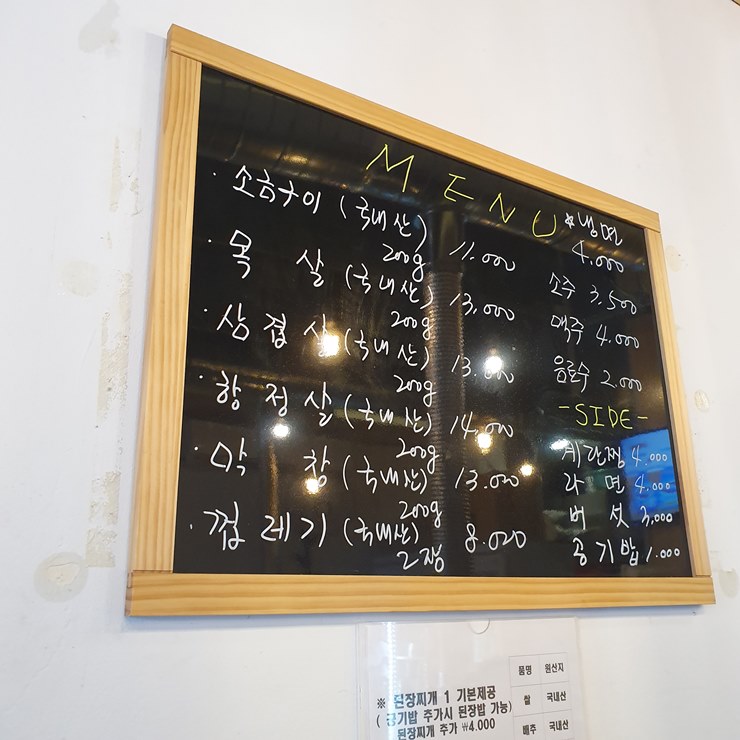 MENU
· 소금구이 (국내산)
200g 11,000
· 목 살 (국내산)
200g 13,000
· 삼겹살 (국내산)
200g 13.000
· 항정살 (국내산)
200g 14,000
· 막 창 (국내산)
200g 13.000
· 껍데기 (국내산)
2장 8.000
☆냉면
4.000
소주 3,500
맥주 4.000
음료수 2.000
-SIDE-
계란찜 4.000
라 면 4.000
버 섯 3,000
공기밥 1.000
※ 된장찌개 1 기본제공
( 공기밥 추가시 된장밥 가능)
된장찌개 추가 ₩4.000
품명 원산지
쌀 국내산
배추 국내산